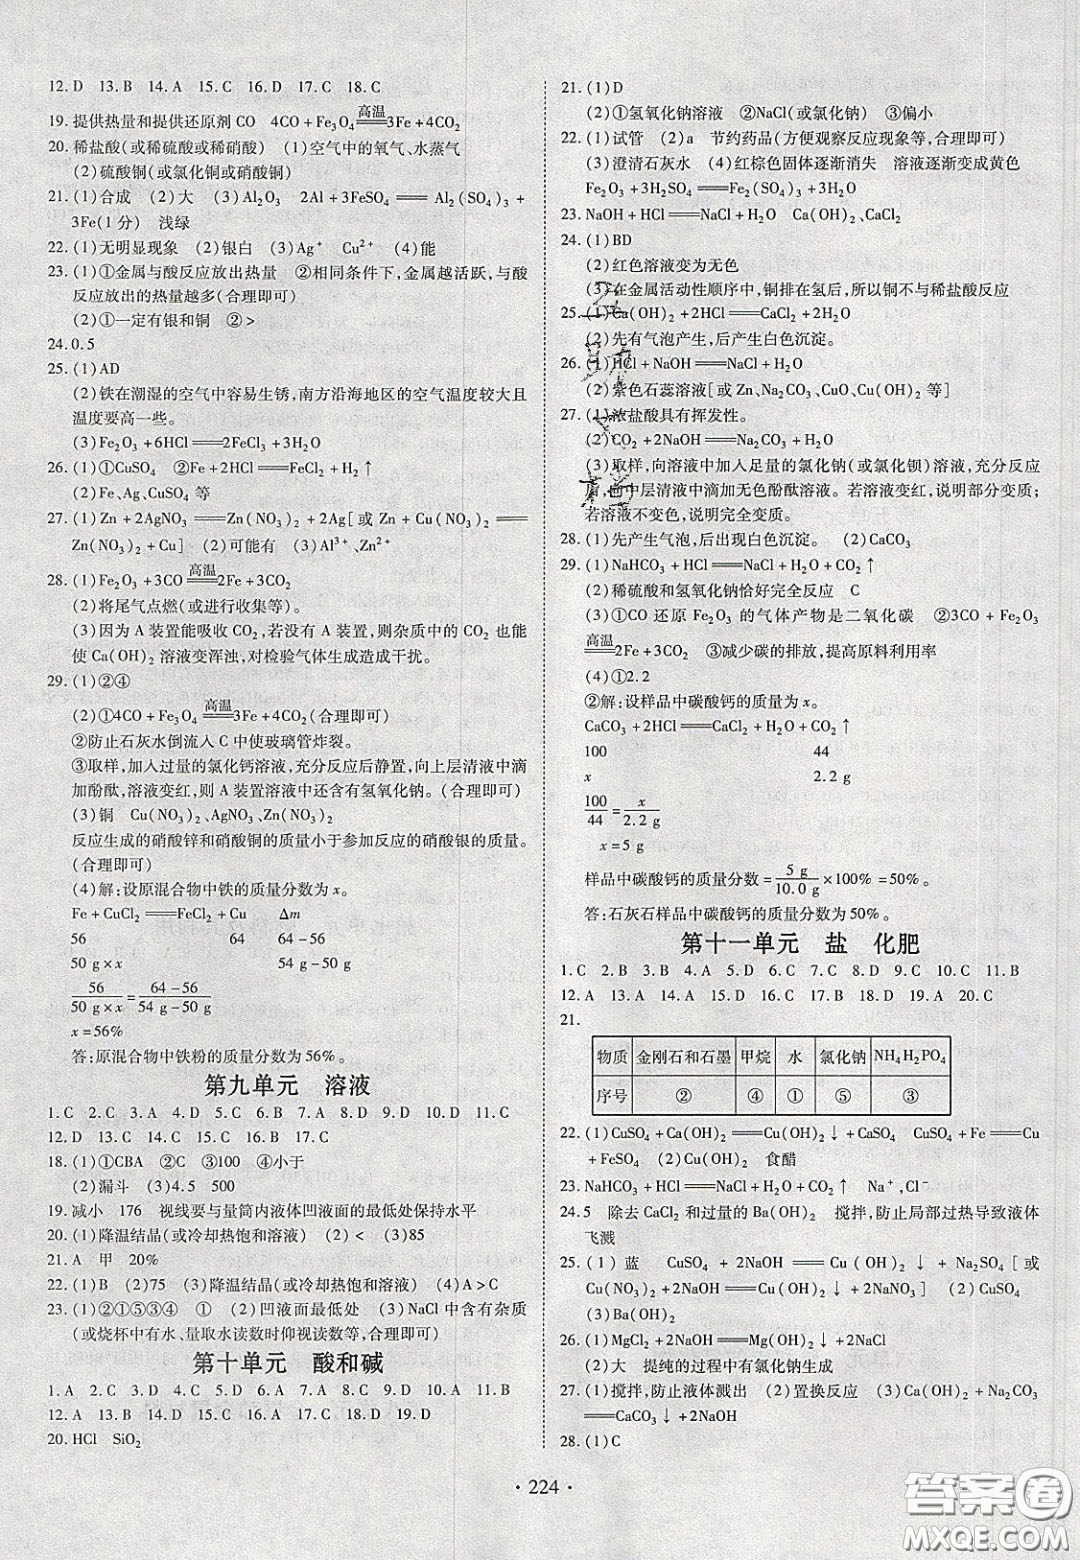 12. D　13. B　14. A　15. C　16. D　17. D　18. C
19. 提供热量和提供还原剂 CO　4CO + Fe₃O₄ ══高温══ 3Fe + 4CO₂
20. 稀盐酸(或稀硫酸或稀硝酸)　(1)空气中的氧气、水蒸气
(2)硫酸铜(或氯化铜或硝酸铜)
21. (1)合成　(2)大　(3)Al₂O₃　2Al + 3FeSO₄ ══ Al₂(SO₄)₃ +
3Fe(1分)　浅绿
22. (1)无明显现象　(2)银白　(3)Ag⁺　Cu²⁺　(4)能
23. (1)①金属与酸反应放出热量　②相同条件下,金属越活跃,与酸
反应放出的热量越多(合理即可)
(2)①一定有银和铜　②>
24. 0.5
25. (1)AD
(2)铁在潮湿的空气中容易生锈,南方沿海地区的空气湿度较大且
温度要高一些。
(3)Fe₂O₃ + 6HCl ══ 2FeCl₃ + 3H₂O
26. (1)①CuSO₄　②Fe + 2HCl ══ FeCl₂ + H₂↑
(2)Fe、Ag、CuSO₄ 等
27. (1)Zn + 2AgNO₃ ══ Zn(NO₃)₂ + 2Ag[或 Zn + Cu(NO₃)₂ ══
Zn(NO₃)₂ + Cu]　(2)可能有　(3)Al³⁺、Zn²⁺
28. (1)Fe₂O₃ + 3CO ══高温══ 2Fe + 3CO₂
(2)将尾气点燃(或进行收集等)。
(3)因为 A 装置能吸收 CO₂,若没有 A 装置,则杂质中的 CO₂ 也能
使 Ca(OH)₂ 溶液变浑浊,对检验气体生成造成干扰。
29. (1)②④
(2)①4CO + Fe₃O₄ ══高温══ 3Fe + 4CO₂(合理即可)
②防止石灰水倒流入 C 中使玻璃管炸裂。
③取样,加入过量的氯化钙溶液,充分反应后静置,向上层清液中滴
加酚酞,溶液变红,则 A 装置溶液中还含有氢氧化钠。(合理即可)
(3)铜　Cu(NO₃)₂、AgNO₃、Zn(NO₃)₂
反应生成的硝酸锌和硝酸铜的质量小于参加反应的硝酸银的质量。
(合理即可)
(4)解:设原混合物中铁的质量分数为 x。
Fe + CuCl₂ ══ FeCl₂ + Cu　Δm
56　64　64-56
50 g × x　54 g-50 g
56/(50 g × x) = (64-56)/(54 g-50 g)
x = 56%
答:原混合物中铁粉的质量分数为 56%。
第九单元　溶液
1. C　2. C　3. A　4. D　5. C　6. B　7. A　8. D　9. D　10. D　11. C
12. D　13. C　14. C　15. C　16. B　17. C
18. (1)①CBA　②C　③100　④小于
(2)漏斗　(3)4.5　500
19. 减小　176　视线要与量筒内液体凹液面的最低处保持水平
20. (1)降温结晶(或冷却热饱和溶液)　(2)<　(3)85
21. A　甲　20%
22. (1)B　(2)75　(3)降温结晶(或冷却热饱和溶液)　(4)A>C
23. (1)②①⑤③④　①　(2)凹液面最低处　(3)NaCl 中含有杂质
(或烧杯中有水、量取水读数时仰视读数等,合理即可)
第十单元　酸和碱
1. A　2. C　3. D　4. C　5. D　6. C　7. D　8. D　9. B　10. B　11. C
12. A　13. B　14. D　15. D　16. D　17. D　18. D　19. D
20. HCl　SiO₂
21. (1)D
(2)①氢氧化钠溶液　②NaCl(或氯化钠)　③偏小
22. (1)试管　(2)a　节约药品(方便观察反应现象等,合理即可)
(3)澄清石灰水　(4)红棕色固体逐渐消失　溶液逐渐变成黄色
Fe₂O₃ + 3H₂SO₄ ══ Fe₂(SO₄)₃ + 3H₂O
23. NaOH + HCl ══ NaCl + H₂O　Ca(OH)₂、CaCl₂
24. (1)BD
(2)红色溶液变为无色
(3)在金属活动性顺序中,铜排在氢后,所以铜不与稀盐酸反应
25. (1)Ca(OH)₂ + 2HCl ══ CaCl₂ + 2H₂O
(2)先有气泡产生,后产生白色沉淀。
26. (1)HCl + NaOH ══ NaCl + H₂O
(2)紫色石蕊溶液[或 Zn、Na₂CO₃、CuO、Cu(OH)₂ 等]
27. (1)浓盐酸具有挥发性。
(2)CO₂ + 2NaOH ══ Na₂CO₃ + H₂O
(3)取样,向溶液中加入足量的氯化钙(或氯化钡)溶液,充分反应
后,向上层清液中滴加无色酚酞溶液。若溶液变红,说明部分变质;
若溶液不变色,说明完全变质。
28. (1)先产生气泡,后出现白色沉淀。　(2)CaCO₃
29. (1)NaHCO₃ + HCl ══ NaCl + H₂O + CO₂↑
(2)稀硫酸和氢氧化钠恰好完全反应　C
(3)①CO 还原 Fe₂O₃ 的气体产物是二氧化碳　②3CO + Fe₂O₃
══高温══ 2Fe + 3CO₂　③减少碳的排放,提高原料利用率
(4)①2.2
②解:设样品中碳酸钙的质量为 x。
CaCO₃ + 2HCl ══ CaCl₂ + H₂O + CO₂↑
100　44
x　2.2 g
100/44 = x/2.2 g
x = 5 g
样品中碳酸钙的质量分数 = 5 g/10.0 g × 100% = 50%。
答:石灰石样品中碳酸钙的质量分数为 50%。
第十一单元　盐　化肥
1. C　2. B　3. B　4. A　5. D　6. C　7. C　8. D　9. C　10. C　11. B
12. A　13. A　14. A　15. D　16. C　17. B　18. D　19. A　20. C
21.
物质　金刚石和石墨　甲烷　水　氯化钠　NH₄H₂PO₄
序号　②　④　①　⑤　③
22. (1)CuSO₄ + Ca(OH)₂ ══ Cu(OH)₂↓ + CaSO₄　CuSO₄ + Fe ══ Cu
+ FeSO₄　(2)Cu(OH)₂　食醋
23. NaHCO₃ + HCl ══ NaCl + H₂O + CO₂↑　Na⁺、Cl⁻
24. 5　除去 CaCl₂ 和过量的 Ba(OH)₂　搅拌,防止局部过热导致液体
飞溅
25. (1)蓝　CuSO₄ + 2NaOH ══ Cu(OH)₂↓ + Na₂SO₄[或
Cu(NO₃)₂ + 2NaOH ══ Cu(OH)₂↓ + 2NaNO₃]　(2)CuSO₄
(3)Ba(OH)₂
26. (1)MgCl₂ + 2NaOH ══ Mg(OH)₂↓ + 2NaCl
(2)大　提纯的过程中有氯化钠生成
27. (1)搅拌,防止液体溅出　(2)置换反应　(3)Ca(OH)₂ + Na₂CO₃
══ CaCO₃↓ + 2NaOH
28. (1)C
· 224 ·
答案圈
MXQE.COM